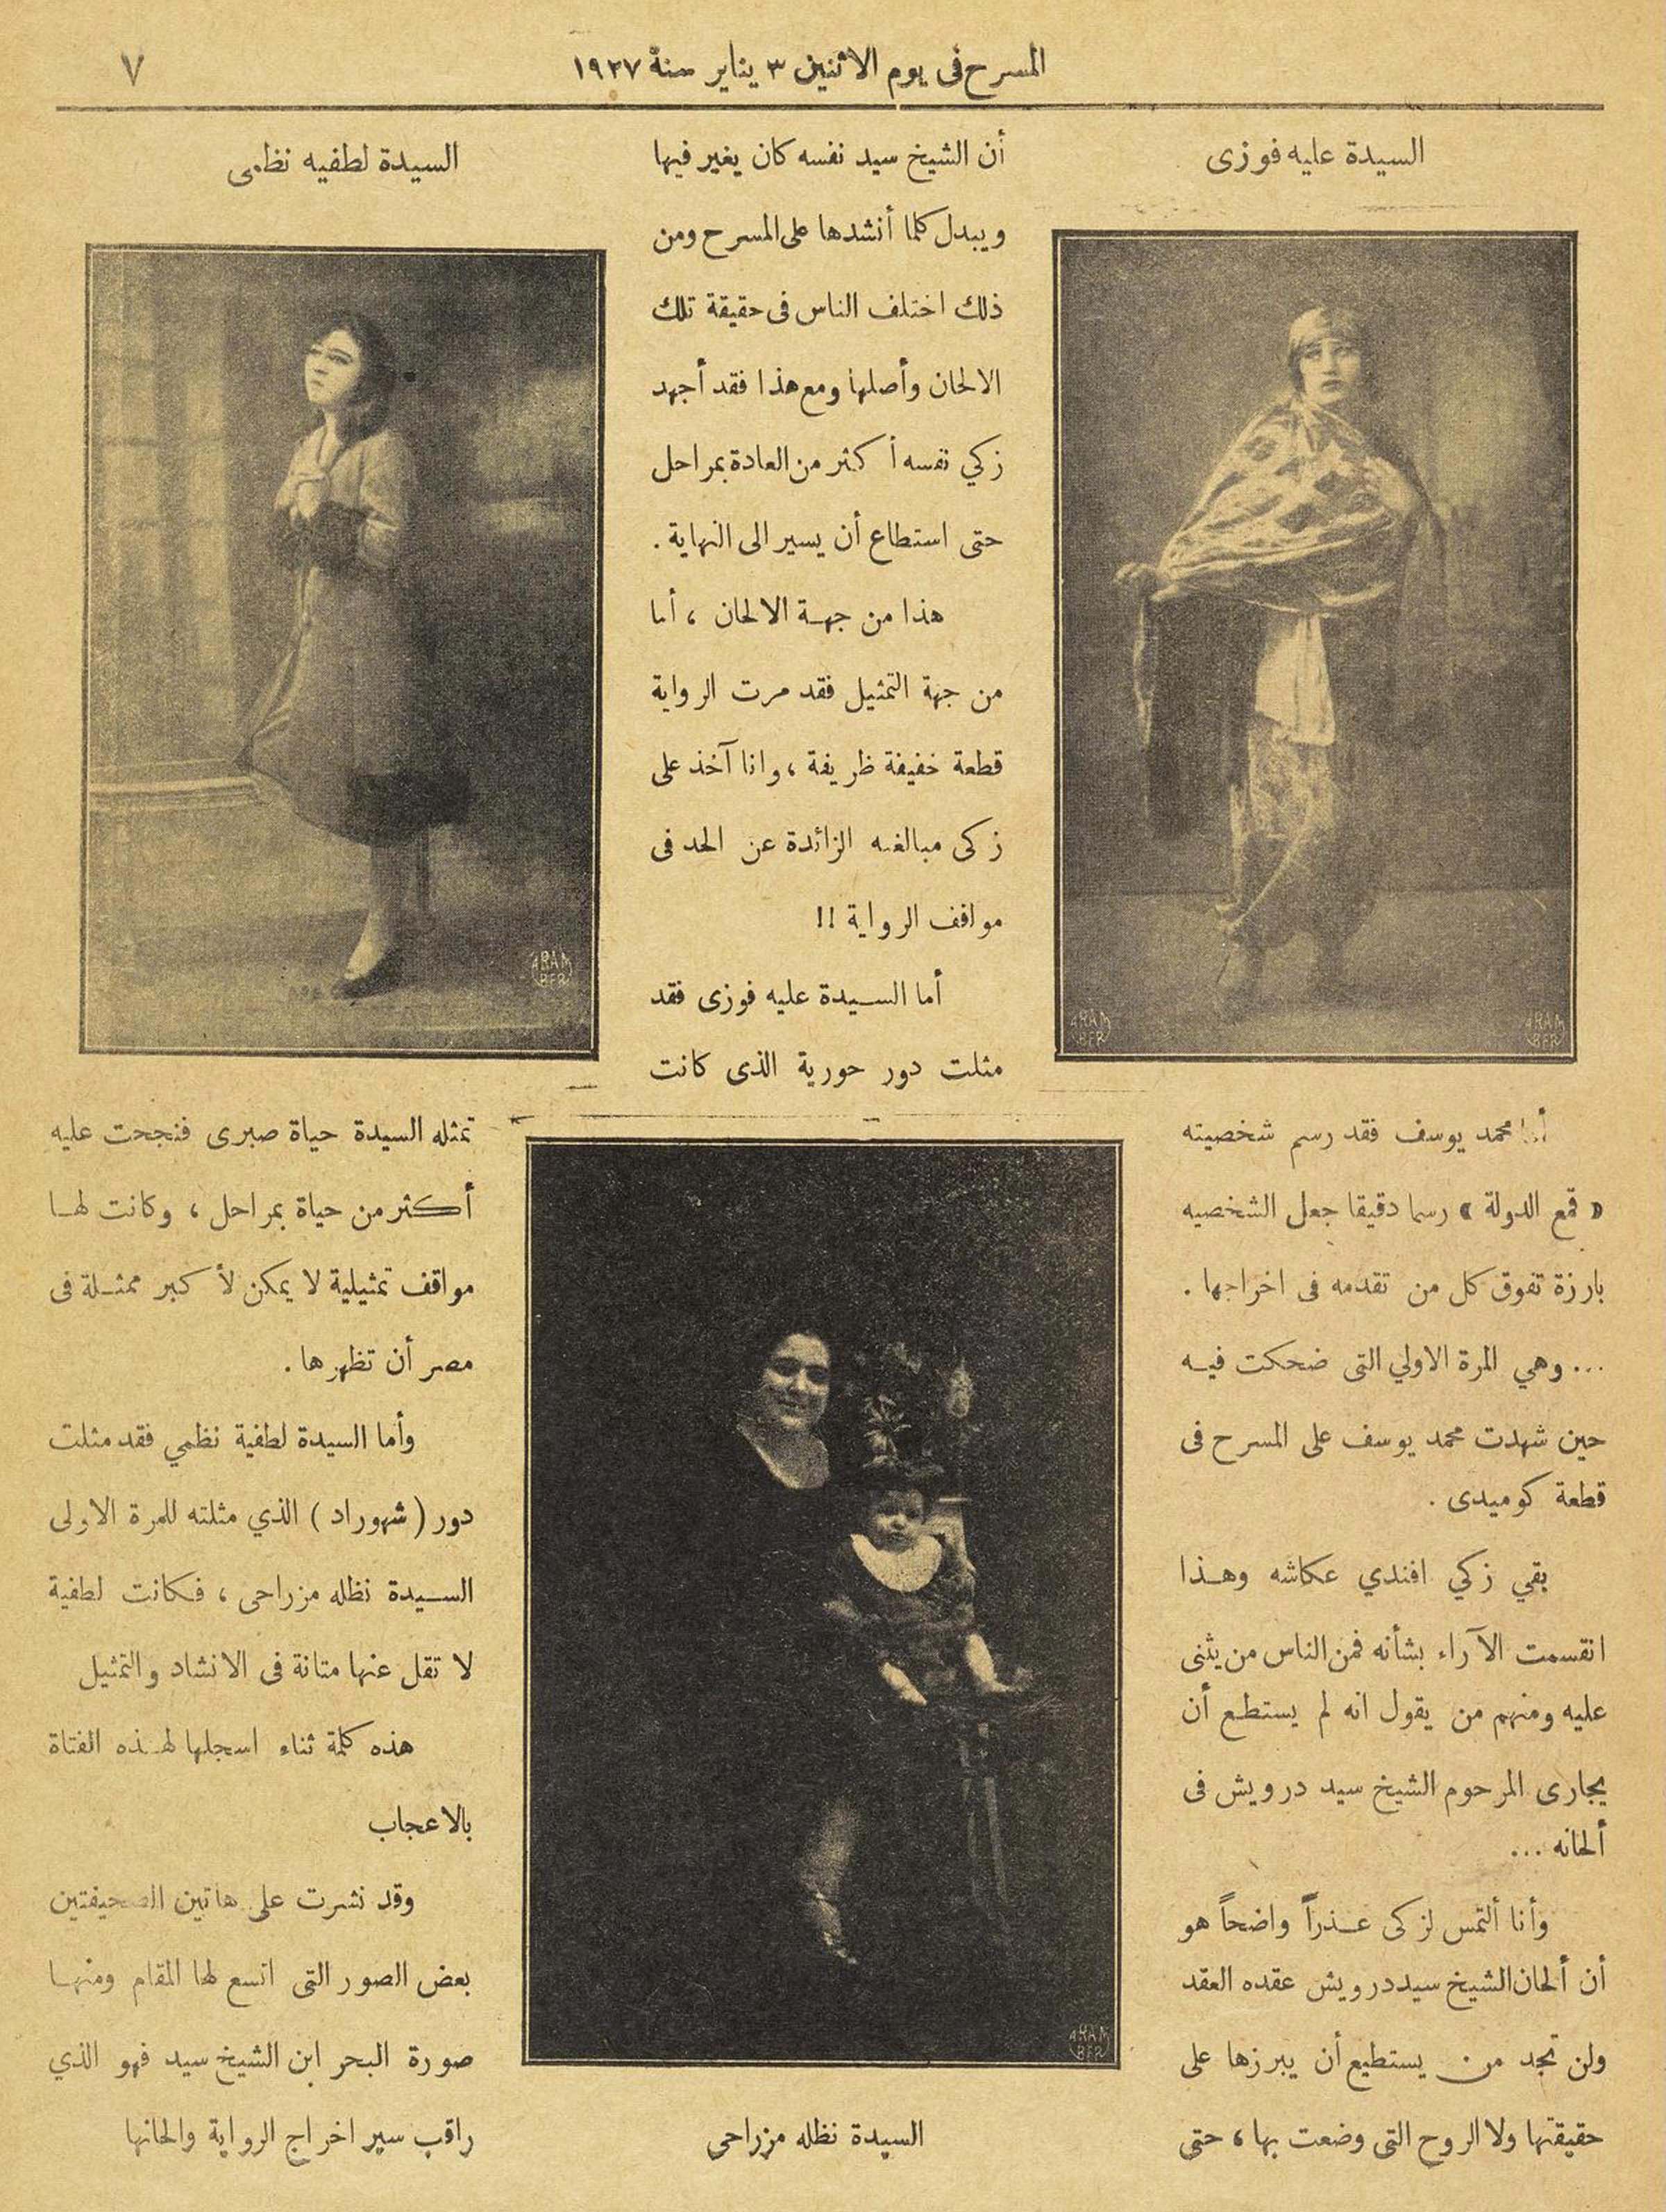 المسرح فى يوم الاثنين ٣ يناير سنة ١٩٢٧
٧
السيدة عليه فوزى
ARAM
BER
ARAM
BER
أما محمد يوسف فقد رسم شخصيته
« قمع الدولة » رسما دقيقا جعل الشخصيه
بارزة تفوق كل من تقدمه فى اخراجها .
... وهي المرة الاولي التى ضحكت فيه
حين شهدت محمد يوسف على المسرح فى
قطعة كوميدى .
بقي زكي افندي عكاشه وهذا
انقسمت الآراء بشأنه فمن الناس من يثنى
عليه ومنهم من يقول انه لم يستطع أن
يجارى المرحوم الشيخ سيد درويش فى
ألحانه ...
وأنا ألتمس لزكى عذراً واضحاً هو
أن ألحان الشيخ سيد درويش عقده العقد
ولن تجد من يستطيع أن يبرزها على
حقيقتها ولا الروح التى وضعت بها ، حتى
أن الشيخ سيد نفسه كان يغير فيها
ويبدل كلما أنشدها على المسرح ومن
ذلك اختلف الناس فى حقيقة تلك
الالحان وأصلها ومع هذا فقد أجهد
زكي نفسه أكثر من العادة بمراحل
حتى استطاع أن يسير الى النهاية .
هذا من جهة الالحان ، أما
من جهة التمثيل فقد مرت الرواية
قطعة خفيفة ظريفة ، وانا آخذ على
زكى مبالغته الزائدة عن الحد فى
مواقف الرواية !!
أما السيدة عليه فوزى فقد
مثلت دور حورية الذى كانت
ARAM
BER
السيدة نظله مزراحى
السيدة لطفيه نظمى
ARAM
BER
تمثله السيدة حياة صبرى فنجحت عليه
أكثر من حياة بمراحل ، وكانت لها
مواقف تمثيلية لا يمكن لأكبر ممثلة فى
مصر أن تظهرها .
وأما السيدة لطفية نظمي فقد مثلت
دور ( شهوراد ) الذي مثلته للمرة الاولى
السيدة نظله مزراحى ، فكانت لطفية
لا تقل عنها متانة فى الانشاد والتمثيل
هذه كلمة ثناء اسجلها لهذه الفتاة
بالاعجاب
وقد نشرت على هاتين الصحيفتين
بعض الصور التى اتسع لها المقام ومنها
صورة البحر ابن الشيخ سيد فهو الذي
راقب سير اخراج الرواية والحانها